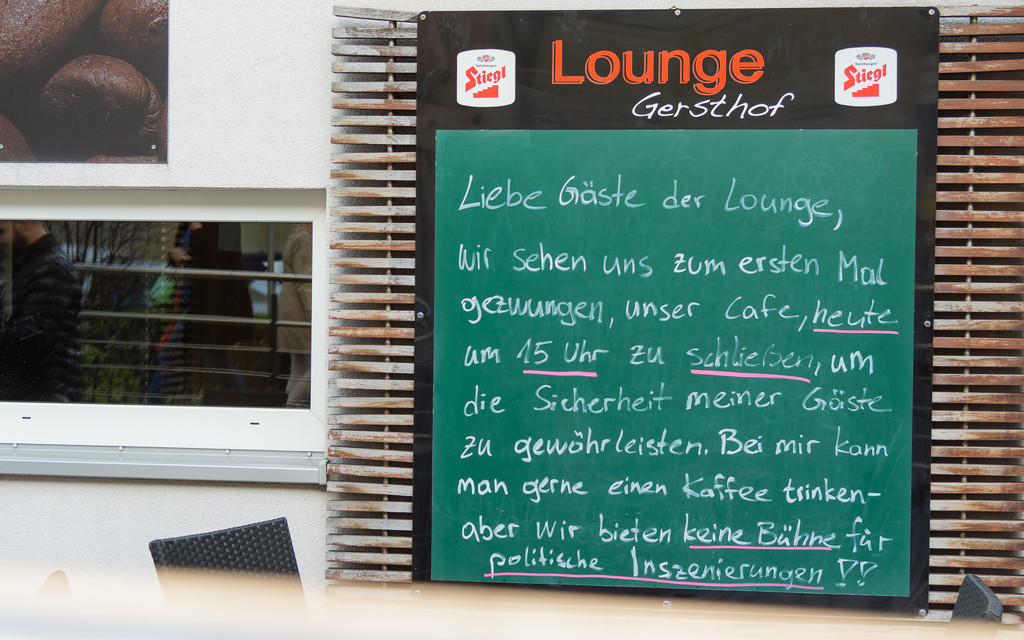 Salzburger
Stiegl
Lounge
Gersthof
Salzburger
Stiegl
Liebe Gäste der Lounge,
wir sehen uns zum ersten Mal
gezwungen, unser Cafe, heute
um 15 Uhr zu schließen, um
die Sicherheit meiner Gäste
zu gewährleisten. Bei mir kann
man gerne einen Kaffee trinken-
aber wir bieten keine Bühne für
politische Inszenierungen !!